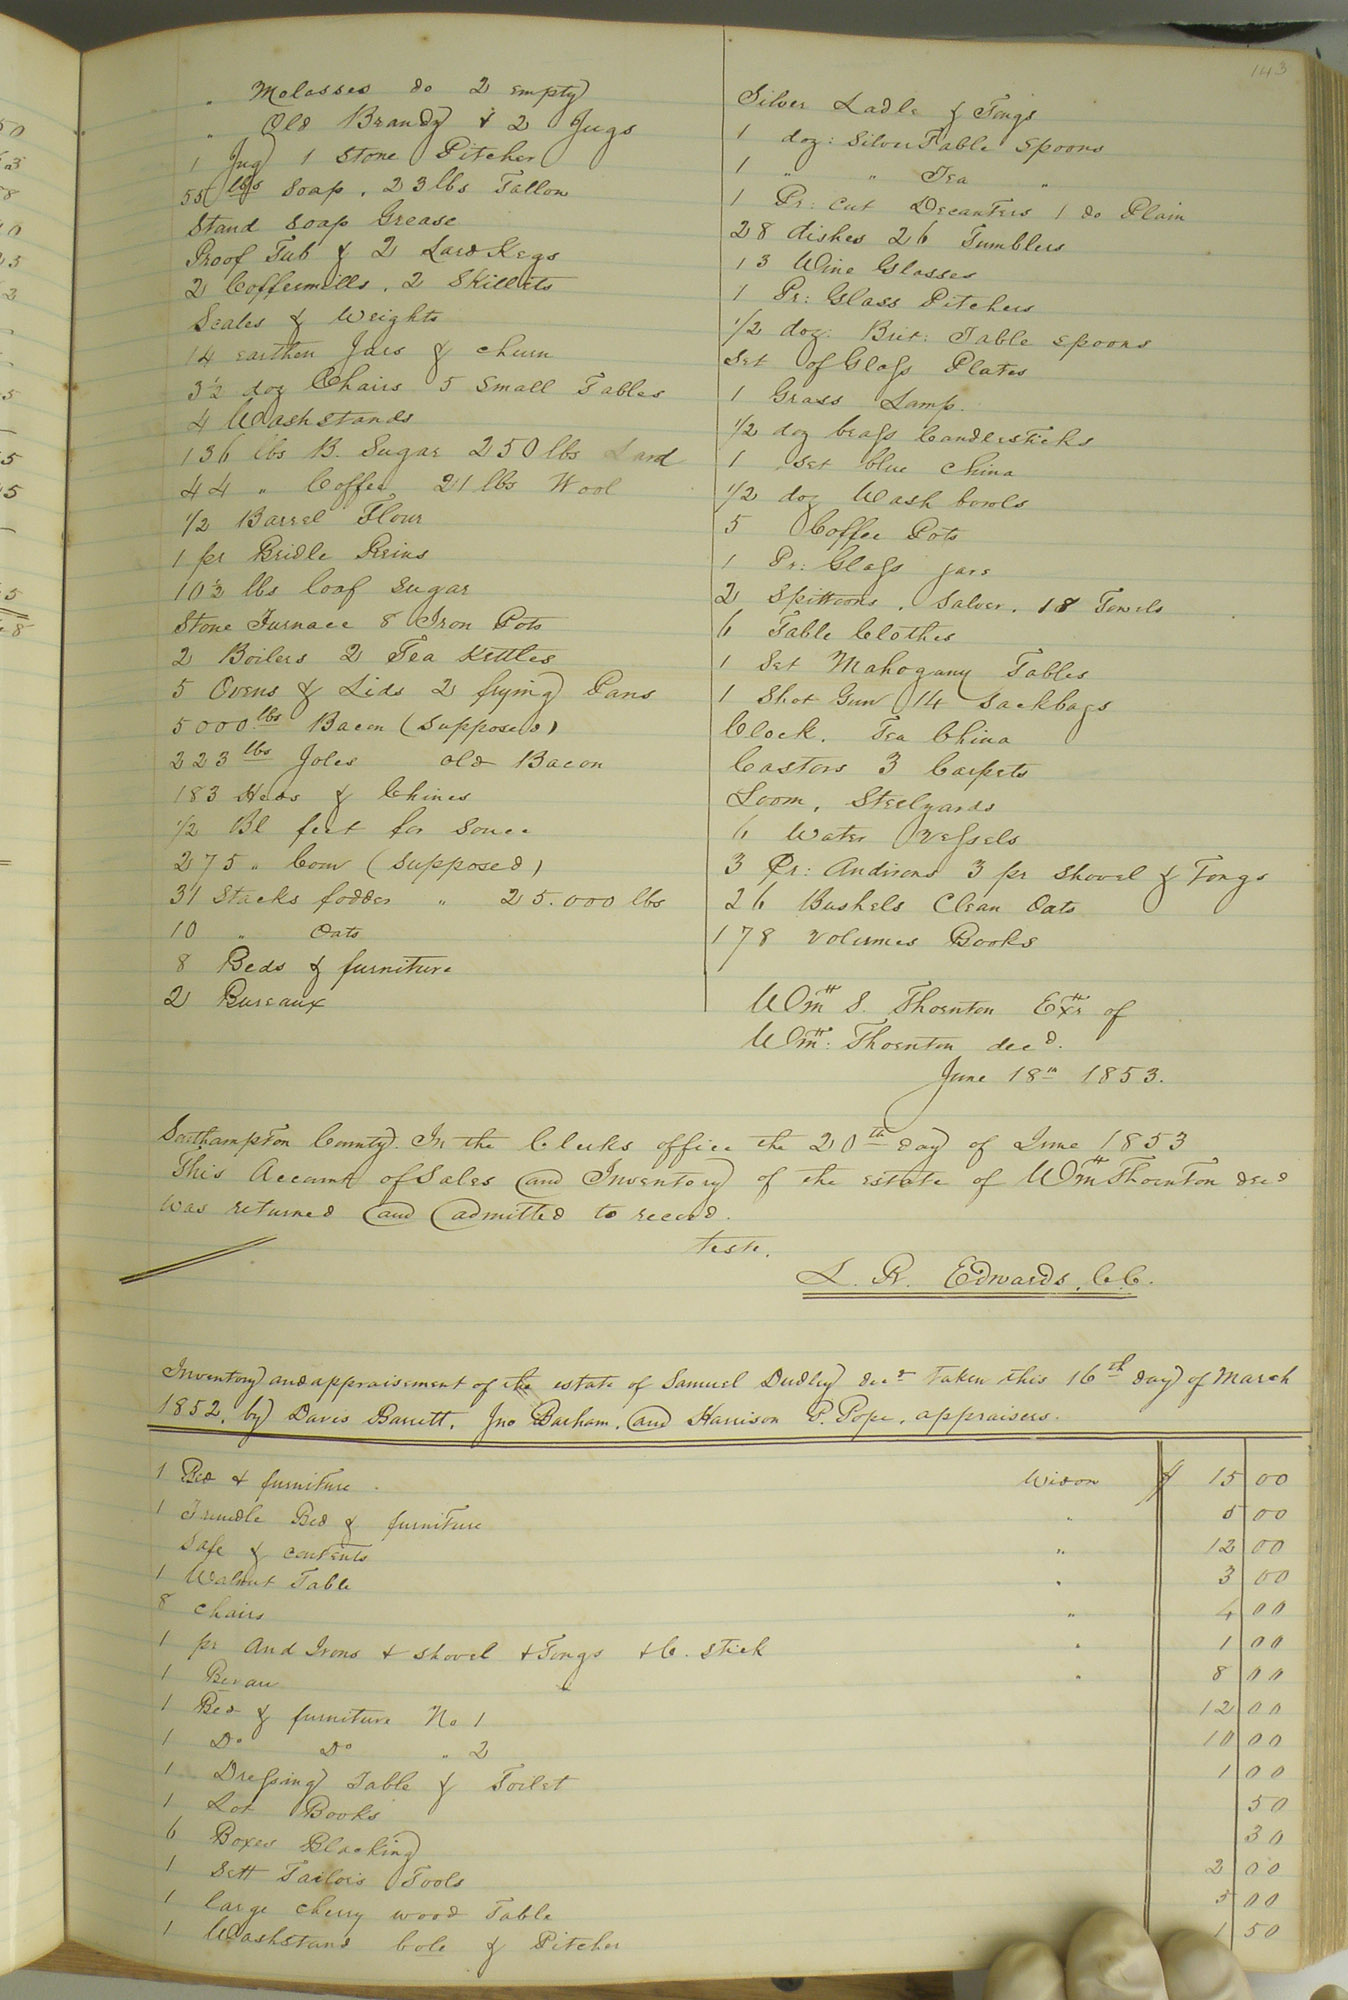 143
" Molasses do 2 empty
" Old Brandy & 2 Jugs
1 Jug 1 Stone Pitcher
55 lbs Soap, 23 lbs Tallow
Stand Soap Grease
Proof Tub & 2 Lard Kegs
2 Coffeemills, 2 Skillets
Scales & Weights
14 earthen Jars & churn
3½ doz Chairs 5 Small Tables
4 Washstands
136 lbs B. Sugar 250 lbs Lard
44 " Coffee 21 lbs Wool
1/2 Barrel Flour
1 pr Bridle Reins
10½ lbs loaf Sugar
Stone Furnace 8 Iron Pots
2 Boilers 2 Tea Kettles
5 Ovens & Lids 2 frying Pans
5000 lbs Bacon (Supposed)
223 lbs Joles old Bacon
183 Heds & Chines
1/2 Bl feet for Souce
275 " Corn (Supposed)
31 Stacks fodder " 25.000 lbs
10 " Oats
8 Beds & furniture
2 Bureaux
Silver Ladle & Tongs
1 doz: Silver Table Spoons
1 " " Tea "
1 Pr: cut Decanters 1 do Plain
28 dishes 26 Tumblers
13 Wine Glasses
1 Pr: Glass Pitchers
1/2 doz: Brit: Table Spoons
Set of Glass Plates
1 Grass Lamp.
1/2 doz brass Candlersticks
1 Set blue China
1/2 doz Wash bowls
5 Coffee Pots
1 Pr: Glass jars
2 Spittoons, Salver, 18 Towels
6 Table Clothes
1 Set Mahogany Tables
1 Shot Gun 14 Sackbags
Clock, Tea China
Castors 3 Carpets
Loom, Steelyards
6 Water Vessels
3 Pr: Andirons 3 pr Shovel & Tongs
26 Bushels Clean Oats
178 Volumes Books
Wm S. Thornton Exr of
Wm: Thornton decd.
June 18th 1853.
Southampton County. In the Clerks office the 20th day of June 1853
This Account of Sales and Inventory of the estate of Wm Thornton decd
was returned and admitted to record.
teste.
L. R. Edwards, C.C.
Inventory and appraisement of the estate of Samuel Dudley decd taken this 16th day of March
1852, by Davis Barrett, Jno Barham, and Harrison P. Pope, appraisers.
1 Bed & furniture. Widow $ 15 00
1 Trundle Bed & furniture " 5 00
Safe & contents " 12 00
1 Walnut Table " 3 00
8 Chairs " 4 00
1 pr And Irons & Shovel & Tongs & C. Stick " 1 00
1 Berau " 8 00
1 Bed & furniture No 1 12 00
1 Do Do " 2 10 00
1 Dressing Table & Toilet 1 00
1 Lot Books 50
6 Boxes Blacking 30
1 Sett Tailors Tools 2 00
1 large cherry wood Table 5 00
1 Washstand bole & Pitcher 1 50